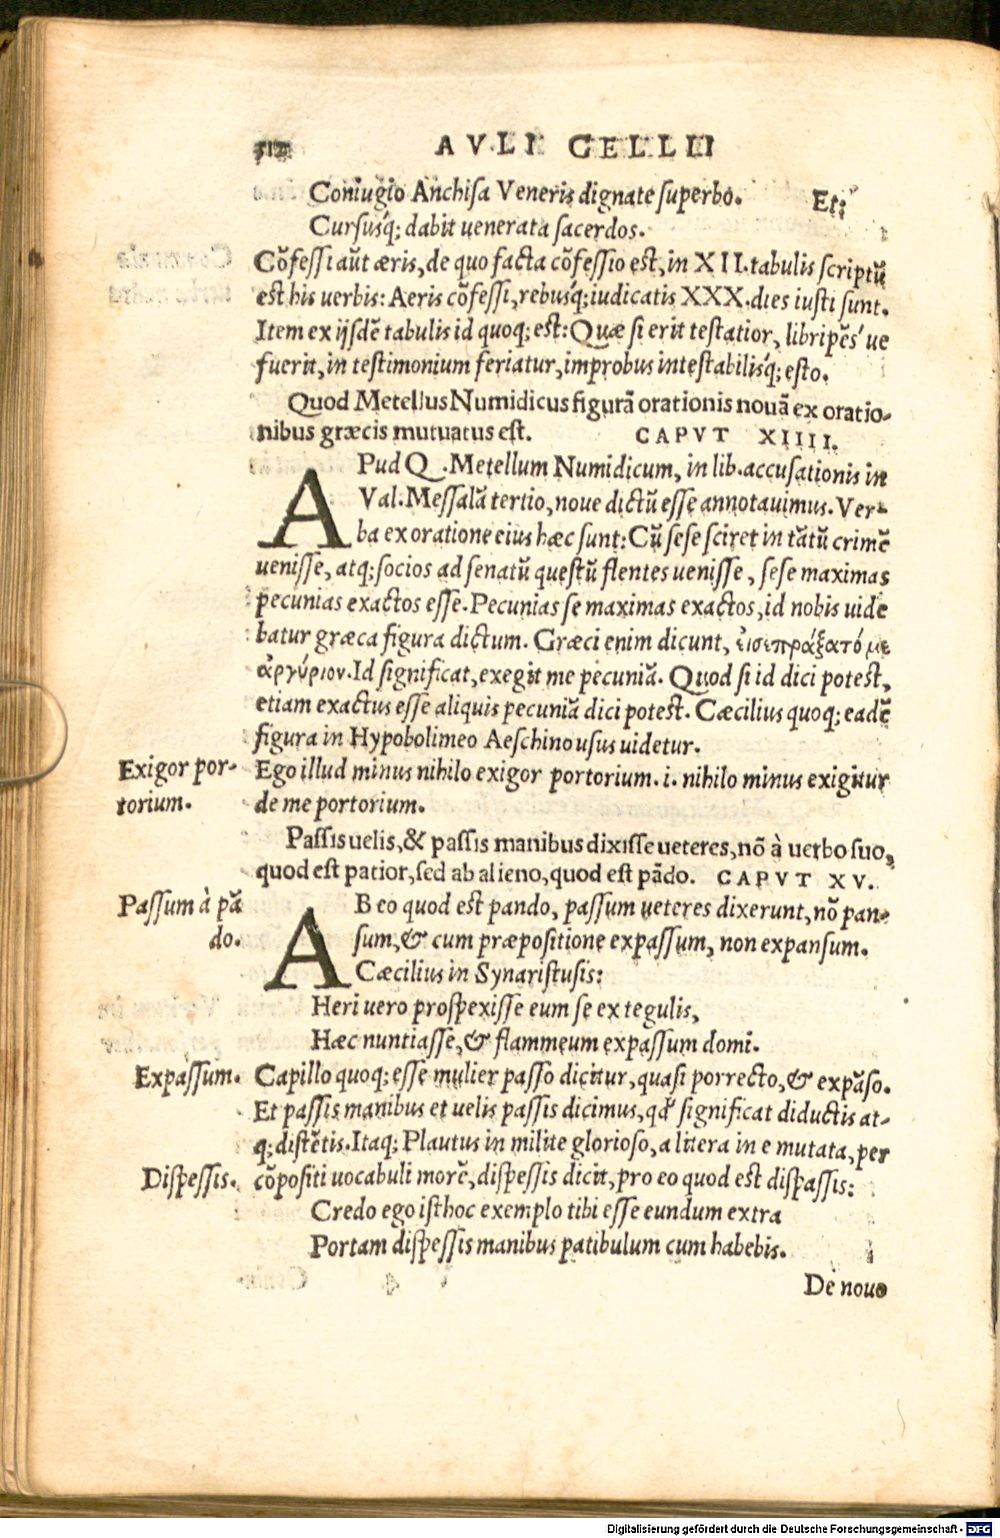 512 AVLI GELLII
Coniugio Anchisa Veneris dignate superbo. Et:
Cursusq́; dabit uenerata sacerdos.
Cõfessi aũt æris, de quo facta cõfessio est, in XII. tabulis scriptũ
est his uerbis: Aeris cõfessi, rebusq́; iudicatis XXX. dies iusti sunt.
Item ex ijsdẽ tabulis id quoq; est: Quæ si erit testatior, libripẽs' ue
fuerit, in testimonium feriatur, improbus intestabilisq́; esto.
Quod Metellus Numidicus figurã orationis nouã ex oratio-
nibus græcis mutuatus est. CAPVT XIIII.
APud Q. Metellum Numidicum, in lib. accusationis in
Val. Messalã tertio, noue dictũ esse annotauimus. Ver-
ba ex oratione eius hæc sunt: Cũ sese sciret in tãtũ crimẽ
uenisse, atq; socios ad senatũ questũ flentes uenisse, sese maximas
pecunias exactos esse. Pecunias se maximas exactos, id nobis uide
batur græca figura dictum. Græci enim dicunt, εἰσεπράξατό με
ἀργύριον. Id significat, exegit me pecuniã. Quod si id dici potest,
etiam exactus esse aliquis pecuniã dici potest. Cæcilius quoq; eadẽ
figura in Hypobolimeo Aeschino usus uidetur.
Exigor por-
torium.
Ego illud minus nihilo exigor portorium. i. nihilo minus exigitur
de me portorium.
Passis uelis, & passis manibus dixisse ueteres, nõ à uerbo suo,
quod est patior, sed ab alieno, quod est pãdo. CAPVT XV.
Passum à pã
do.
AB eo quod est pando, passum ueteres dixerunt, nõ pan-
sum, & cum præpositione expassum, non expansum.
Cæcilius in Synaristusis:
Heri uero prospexisse eum se ex tegulis,
Hæc nuntiasse, & flammeum expassum domi.
Expassum.
Capillo quoq; esse mulier passo dicitur, quasi porrecto, & expãso.
Et passis manibus et uelis passis dicimus, qd' significat diductis at-
q; distẽtis. Itaq; Plautus in milite glorioso, a litera in e mutata, per
Dispessis.
cõpositi uocabuli morẽ, dispessis dicit, pro eo quod est dispassis:
Credo ego isthoc exemplo tibi esse eundum extra
Portam dispessis manibus patibulum cum habebis.
De nouo
Digitalisierung gefördert durch die Deutsche Forschungsgemeinschaft - DFG